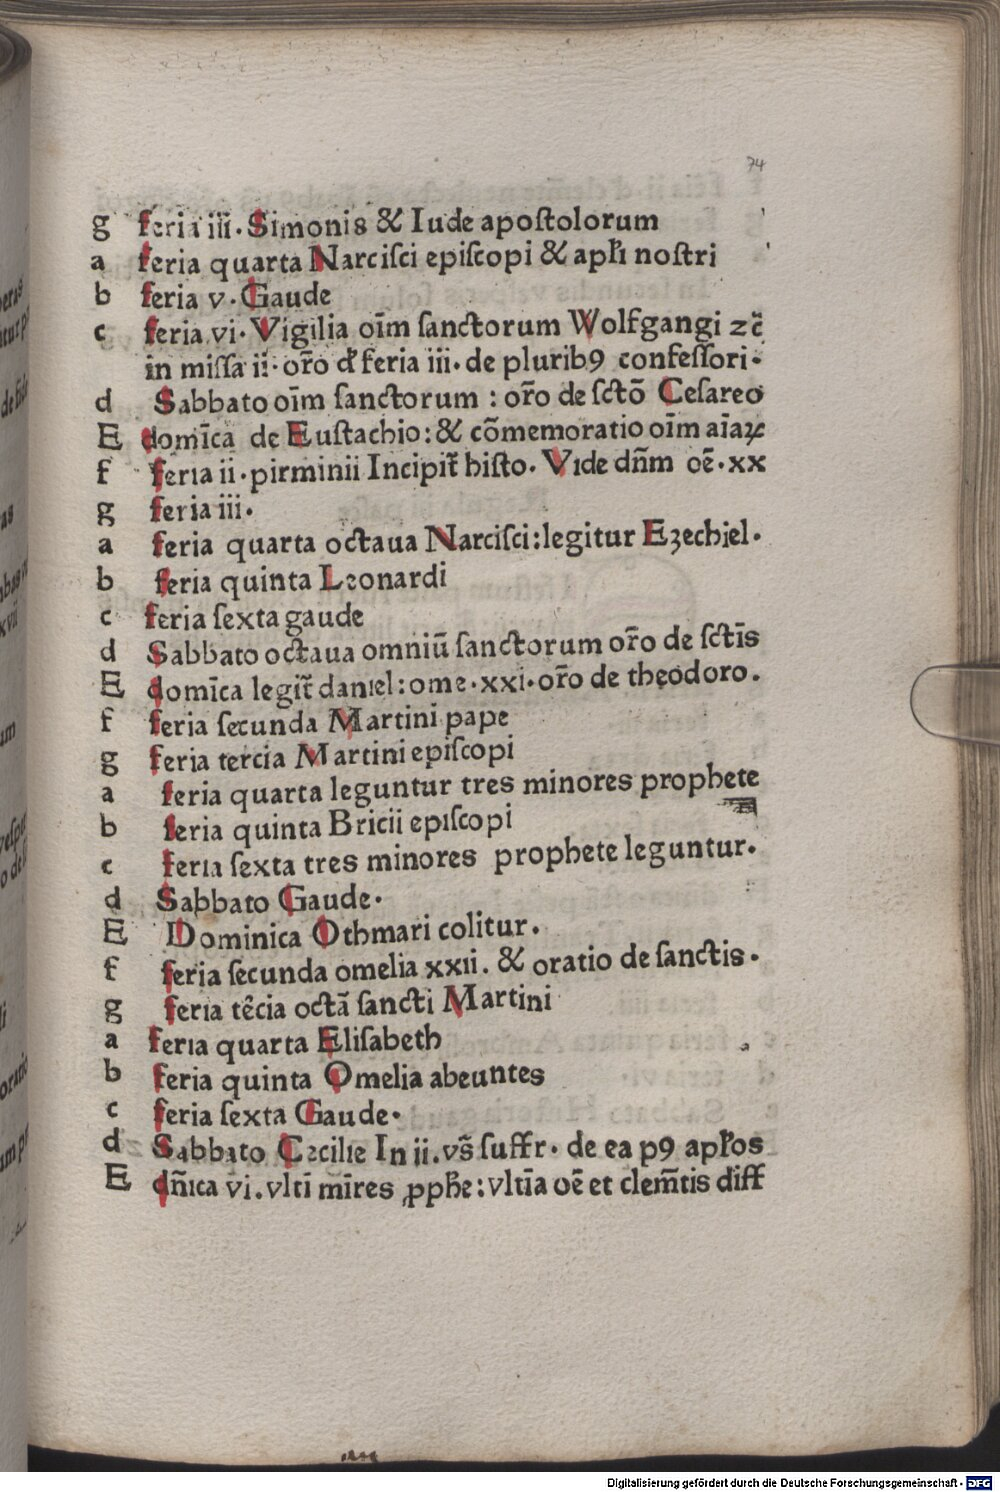 74
g feria iii. Simonis & Iude apoſtolorum
a feria quarta Narciſci epiſcopi & apłi noſtri
b feria v. Gaude
c feria vi. Vigilia oīm ſanctorum Wolfgangi zc̄
in miſſa ii. or̄o đ feria iii. de plurib9 confeſſori.
d Sabbato oīm ſanctorum : or̄o de ſctō Ceſareo
E domīca de Euſtachio: & cōmemoratio oīm aīaꝝ
f feria ii. pirminii Incipit̄ hiſto. Vide dn̄m oē. xx
g feria iii.
a feria quarta octaua Narciſci: legitur Ezechiel.
b feria quinta Leonardi
c feria ſexta gaude
d Sabbato octaua omniū ſanctorum or̄o de ſctīs
E domīca legit̄ daniel: ome. xxi. or̄o de theodoro.
f feria ſecunda Martini pape
g feria tercia Martini epiſcopi
a feria quarta leguntur tres minores prophete
b feria quinta Bricii epiſcopi
c feria ſexta tres minores prophete leguntur.
d Sabbato Gaude.
E Dominica Othmari colitur.
f feria ſecunda omelia xxii. & oratio de ſanctis.
g feria tēcia octā ſancti Martini
a feria quarta Eliſabeth
b feria quinta Omelia abeuntes
c feria ſexta Gaude.
d Sabbato Cecilie In ii. vs̄ ſuffr. de ea p9 apłos
E dn̄ica vi. vltī mīres ꝓph̄e: vltīa oē et clem̄tis diff
Digitalisierung gefördert durch die Deutsche Forschungsgemeinschaft - DFG